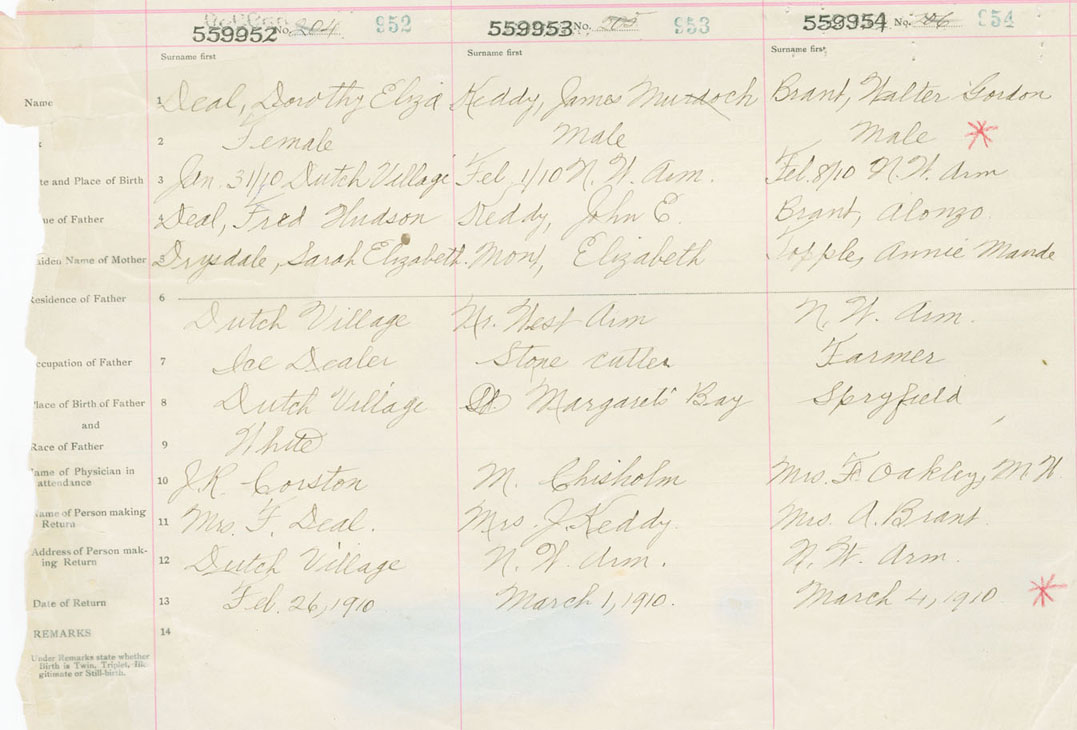 559952 No. 204 952 559953 No. 205 953 559954 No. 206 954
Surname first Surname first Surname first
Name 1 Deal, Dorothy Eliza Keddy, James Murdoch Brant, Walter Gordon
2 Female Male Male
te and Place of Birth 3 Jan. 31/10 Dutch Village Feb 1/10 N. W. Arm. Feb. 8/10 N. W. Arm
me of Father 4 Deal, Fred Hudson Keddy, John E. Brant, Alonzo
aiden Name of Mother 5 Drysdale, Sarah Elizabeth. Mont, Elizabeth Topple, Annie Maude
Residence of Father 6 Dutch Village Nr. West Arm N. W. Arm.
ccupation of Father 7 Ice Dealer Stone cutter Farmer
lace of Birth of Father 8 Dutch Village St Margaret's Bay Spryfield
and
Race of Father 9 White
ame of Physician in
attendance 10 J. R. Corston M. Chisholm Mrs. F. Oakley, M. W.
Name of Person making
Return 11 Mrs. F. Deal. Mrs. J. Keddy. Mrs. A. Brant.
Address of Person mak-
ing Return 12 Dutch Village N. W. Arm. N. W. Arm.
Date of Return 13 Feb. 26, 1910 March 1, 1910. March 4, 1910
REMARKS 14
Under Remarks state whether
Birth is Twin, Triplet, Ille-
gitimate or Still-birth.